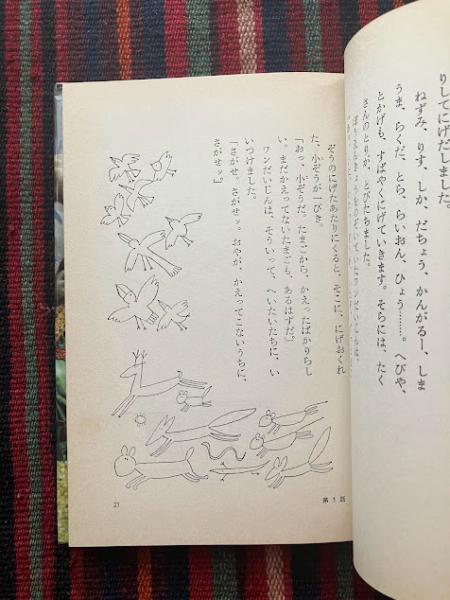 りしてにげだしました。
ねずみ、りす、しか、だちょう、かんがるー、しま
うま、らくだ、とら、らいおん、ひょう……。へびや、
とかげも、すばやくにげていきます。そらには、たく
さんのとりが、とびたちました。
ぞうのにげたあたりにくると、そこに、にげおくれ
た、小ぞうが一ぴき。
「おっ、小ぞうだ。たまごから、かえったばかりらし
い。まだかえってないたまごも、あるはずだ。」
ワンだいじんは、そういって、へいたいたちに、い
いつけました。
「さがせ、さがせッ。おやが、かえってこないうちに、
さがせッ。」
21
第1話